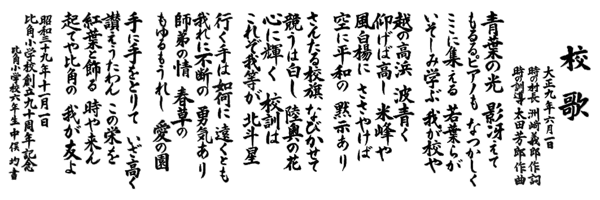 校歌
大正九年六月一日
時の村長 洲崎義郎作詞
時の訓導 太田芳郎作曲
青葉の光 影冴えて
もるるピアノも なつかしく
ここに集える 若葉らが
いそしみ学ぶ 我が校や
越の高浜 波青く
仰げば高し 米峰や
風白楊に ささやけば
空に平和の 黙示あり
さんたる校旗 なびかせて
競うは白し 陸奥の花
心に輝く 校訓は
これぞ我等が 北斗星
行く手は如何に 遠くとも
我れに不断の 勇気あり
師弟の情 春草の
もゆるもうれし 愛の園
手に手をとりて いざ高く
讃えうたわん この栄を
紅葉と飾る 時や来ん
起てや比角の 我が友よ
昭和三十九年十一月一日
比角小学校創立九十周年記念
比角小学校六年生 中俣 均書